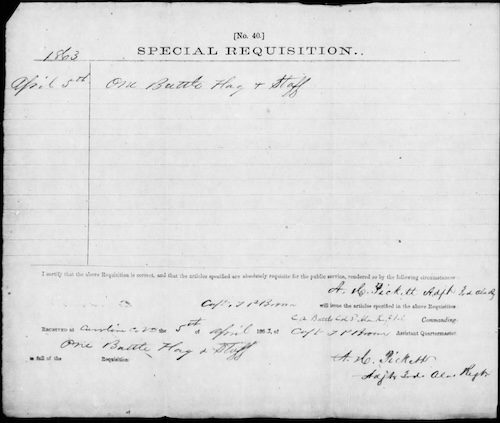 [No. 40.]
SPECIAL REQUISITION.
1863
April 5th One Battle Flag & Staff
I certify that the above Requisition is correct, and that the articles specified are absolutely requisite for the public service, rendered so by the following circumstances:
A. C. Pickett Adjt
Capt. T P
will issue the articles specified in the above Requisition
Commanding.
RECEIVED at the 5th of April 1863, of Capt T P Assistant Quartermaster
One Battle Flag & Staff
in full of the Requisition.
A. C. Pickett
Adjt Regt